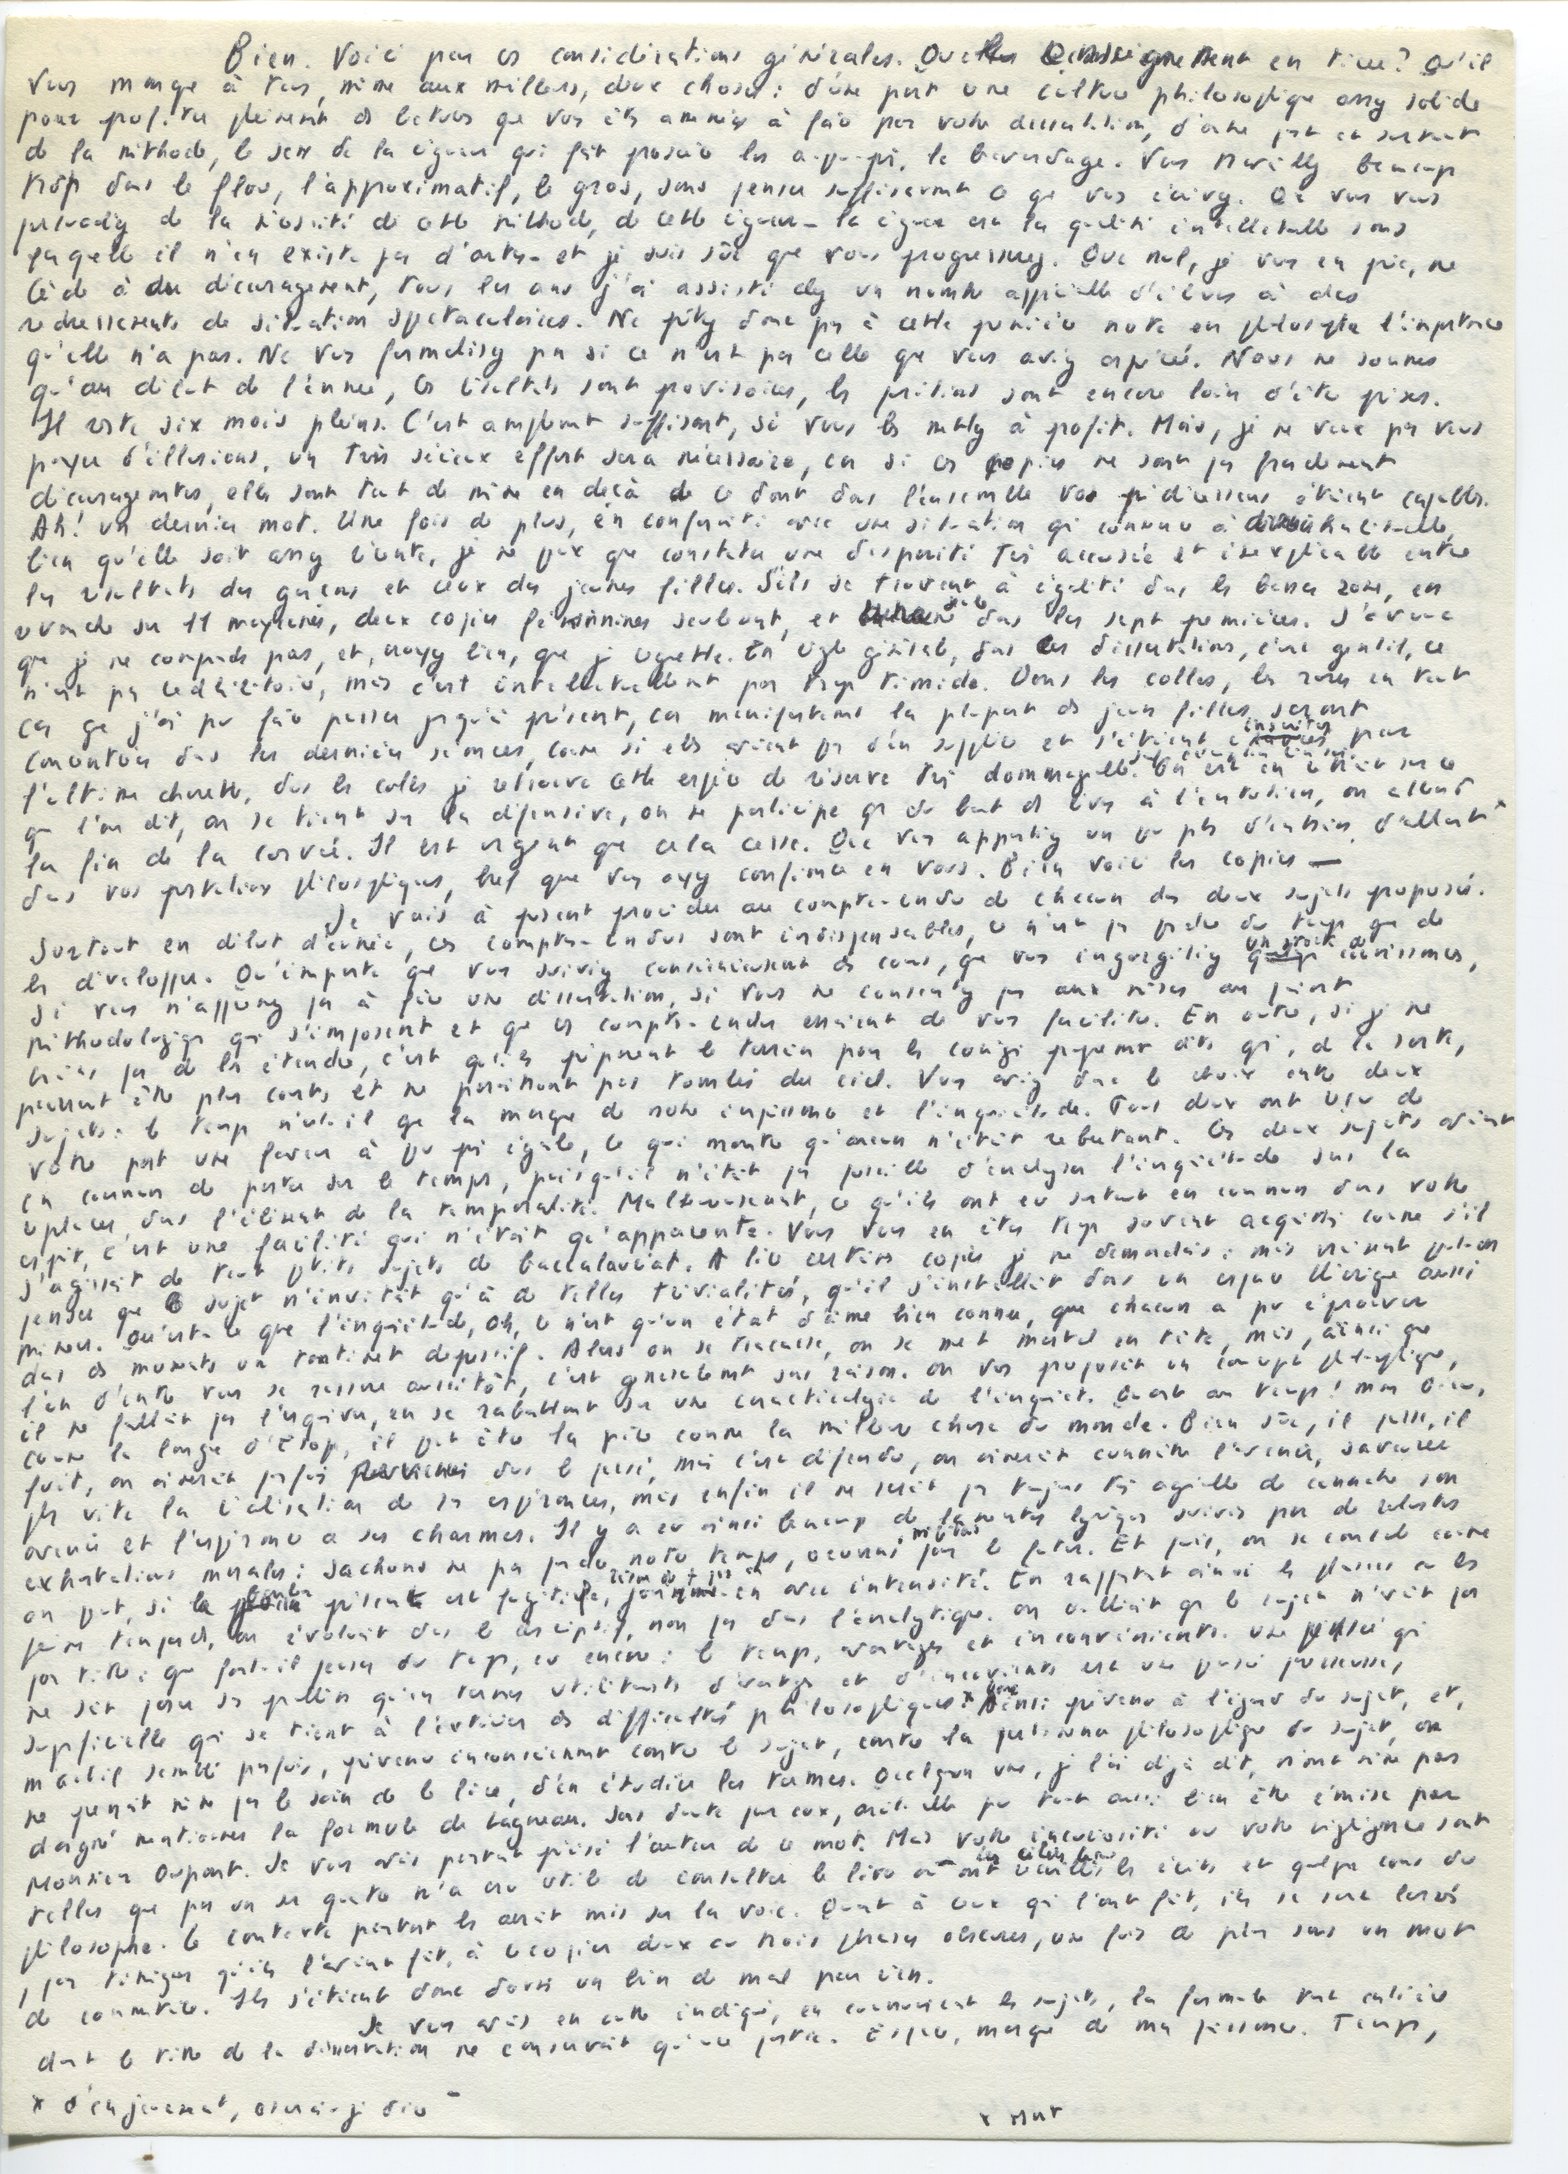 Bien. Voici pour ces considérations générales. Quel enseignement en tirer? Qu'il
vous manque à tous, même aux meilleurs, deux choses: d'une part une culture philosophique assez solide
pour profiter pleinement des lectures que vous êtes amenés à faire pour votre dissertation, d'autre part et surtout
de la méthode, le sens de la rigueur qui fait proscrire les à-peu-près, le bavardage. Vous travaillez beaucoup
trop dans le flou, l'approximatif, le gros, sans penser suffisamment ce que vous écrivez. Que vous vous
persuadiez de la nécessité de cette méthode, de cette rigueur – la rigueur est la qualité intellectuelle sans
laquelle il n'en existe pas d'autres – et je suis sûr que vous progresserez. Que nul, je vous en prie, ne
cède à du découragement, tous les ans j'ai assisté chez un nombre appréciable d'élèves à des
redressements de situation spectaculaires. Ne prêtez donc pas à cette première note en philosophie l'importance
qu'elle n'a pas. Ne vous formalisez pas si ce n'est pas celle que vous aviez espérée. Nous ne sommes
qu'au début de l'année, les résultats sont provisoires, les positions sont encore loin d'être prises.
Il reste six mois pleins. C'est amplement suffisant, si vous les mettez à profit. Mais, je ne veux pas vous
payer d'illusions, un très sérieux effort sera nécessaire, car si ces copies ne sont pas franchement
décourageantes, elles sont tout de même en deçà de ce dont dans l'ensemble vos prédécesseurs étaient capables.
Ah! un dernier mot. Une fois de plus, en conformité avec une situation qui commence à devenir habituelle,
bien qu'elle soit assez récente, je ne peux que constater une disparité très accusée et inexplicable entre
les résultats des garçons et ceux des jeunes filles. S'ils se trouvent à égalité dans les basses zones, en
revanche sur 11 moyennes, deux copies féminines seulement, et dans les sept premières. J'avoue
que je ne comprends pas, et, croyez bien, que je regrette. En règle générale, dans les dissertations, c'est gentil, ce
n'est pas rédhibitoire, mais c'est intellectuellement par trop timide. Dans les colles, les rares en tout
cas que j'ai pu faire passer jusqu'à présent, car manifestement la plupart des jeunes filles seront
concentrées dans les dernières séances, comme si elles avaient peur d'un supplice et s'étaient inscrites pour
l'ultime charrette, dans les colles je retrouve cette espèce de réserve très dommageable. On est en retrait sur ce
que l'on dit, on se tient sur la défensive, on ne participe que du bout des lèvres à l'entretien, on attend
la fin de la corvée. Il est urgent que cela cesse. Que vous apportiez un peu plus d'entrain, d'allant x
dans vos prestations philosophiques, bref que vous ayez confiance en vous. Bien voici les copies —
Je vais à présent procéder au compte-rendu de chacun des deux sujets proposés.
Surtout en début d'année, ces comptes-rendus sont indispensables, ce n'est pas perdre du temps que de
les développer. Qu'importe que vous suiviez consciencieusement des cours, que vous ingurgitiez un stock de
si vous n'apprenez pas à faire une dissertation, si vous ne consentez pas aux mises au point
méthodologiques qui s'imposent et que ces comptes-rendus essaient de vous faciliter. En outre, si je ne
crains pas de les étendre, c'est qu'ils préparent le terrain pour les corrigés proprement dits qui, de la sorte,
peuvent être plus courts et ne paraîtront pas tombés du ciel. Vous aviez donc le choix entre deux
sujets: le temps n'est-il que la marque de notre impuissance et l'inquiétude. Tous deux ont reçu de
votre part une faveur à peu près égale, ce qui montre qu'aucun n'était rebutant. Ces deux sujets avaient
en commun de porter sur le temps, puisqu'il n'était pas possible d'analyser l'inquiétude sans la
replacer dans l'élément de la temporalité. Malheureusement, ce qu'ils ont eu surtout en commun dans votre
esprit, c'est une facilité qui n'était qu'apparente. Vous vous en êtes trop souvent acquittés comme s'il
s'agissait de tout petits sujets de baccalauréat. A lire certaines copies je me demandais: mais vraiment peut-on
penser que ce sujet n'invitait qu'à de telles trivialités, qu'il s'installait dans un espace théorique aussi
mineur. Qu'est-ce que l'inquiétude, oh, ce n'est qu'un état d'âme bien connu, que chacun a pu éprouver
dans des moments un tantinet dépressif. Alors on se tracasse, on se met martel en tête, mais, ainsi que
l'un d'entre vous se rassure aussitôt, c'est généralement sans raison. On vous proposait un concept philosophique,
il ne fallait pas l'esquiver, en se rabattant sur une caractérologie de l'inquiet. Quant au temps! mon Dieu,
comme la langue d'Esope, il peut être la pire comme la meilleure chose du monde. Bien sûr, il passe, il
fuit, on aimerait parfois revenir dans le passé, mais c'est défendu, on aimerait connaître l'avenir, savourer
plus vite la réalisation de ses espérances, mais enfin il ne serait pas toujours très agréable de connaître son
avenir et l'espérance a ses charmes. Il y a eu ainsi beaucoup de lamentos lyriques suivis par de robustes
exhortations morales: sachons ne pas perdre notre temps, œuvrons pour le futur. Et puis, on se console comme
on peut, si le présent est fugitif, jouissons-en avec intensité. En rapportant ainsi les plaisirs ou les
on évoluait dans le descriptif, non pas dans l'analytique. On oubliait que le sujet n'avait pas
pour titre: que faut-il penser du temps, ou encore: le temps, avantages et inconvénients. Une pensée qui
ne sait poser ses problèmes qu'en termes utilitaires d'avantages et d'inconvénients est une pensée paresseuse,
superficielle qui se tient à l'extérieur des difficultés philosophiques. x Ainsi prévenu à l'égard du sujet, et,
m'a-t-il semblé parfois, prévenu inconsciemment contre le sujet, contre la pertinence philosophique du sujet, on
ne prenait même pas le soin de le lire, d'en étudier les termes. Quelques uns, je l'ai déjà dit, n'ont même pas
daigné mentionner la formule de Lagneau. Sans doute pour eux, aurait-elle pu tout aussi bien être émise par
Monsieur Dupont. Je vous avais pourtant précisé l'auteur de ce mot. Mais votre incuriosité ou votre négligence sont
telles que pas un sur quatre n'a cru utile de consulter le livre où ont été recueillis les écrits et quelques cours du
philosophe. Le contexte pourtant les aurait mis sur la voie. Quant à ceux qui l'ont fait, ils se sont bornés
, pour témoigner qu'ils l'avaient fait, à recopier deux ou trois phrases obscures, une fois de plus sans un mot
de commentaire. Ils s'étaient donc donné un brin de mal pour rien.
Je vous avais en outre indiqué, en communiquant les sujets, la formule tout entière
dont le titre de la dissertation ne conservait qu'une partie. Espace, marque de ma puissance. Temps,
x d'enjouement, oserai-je dire
x